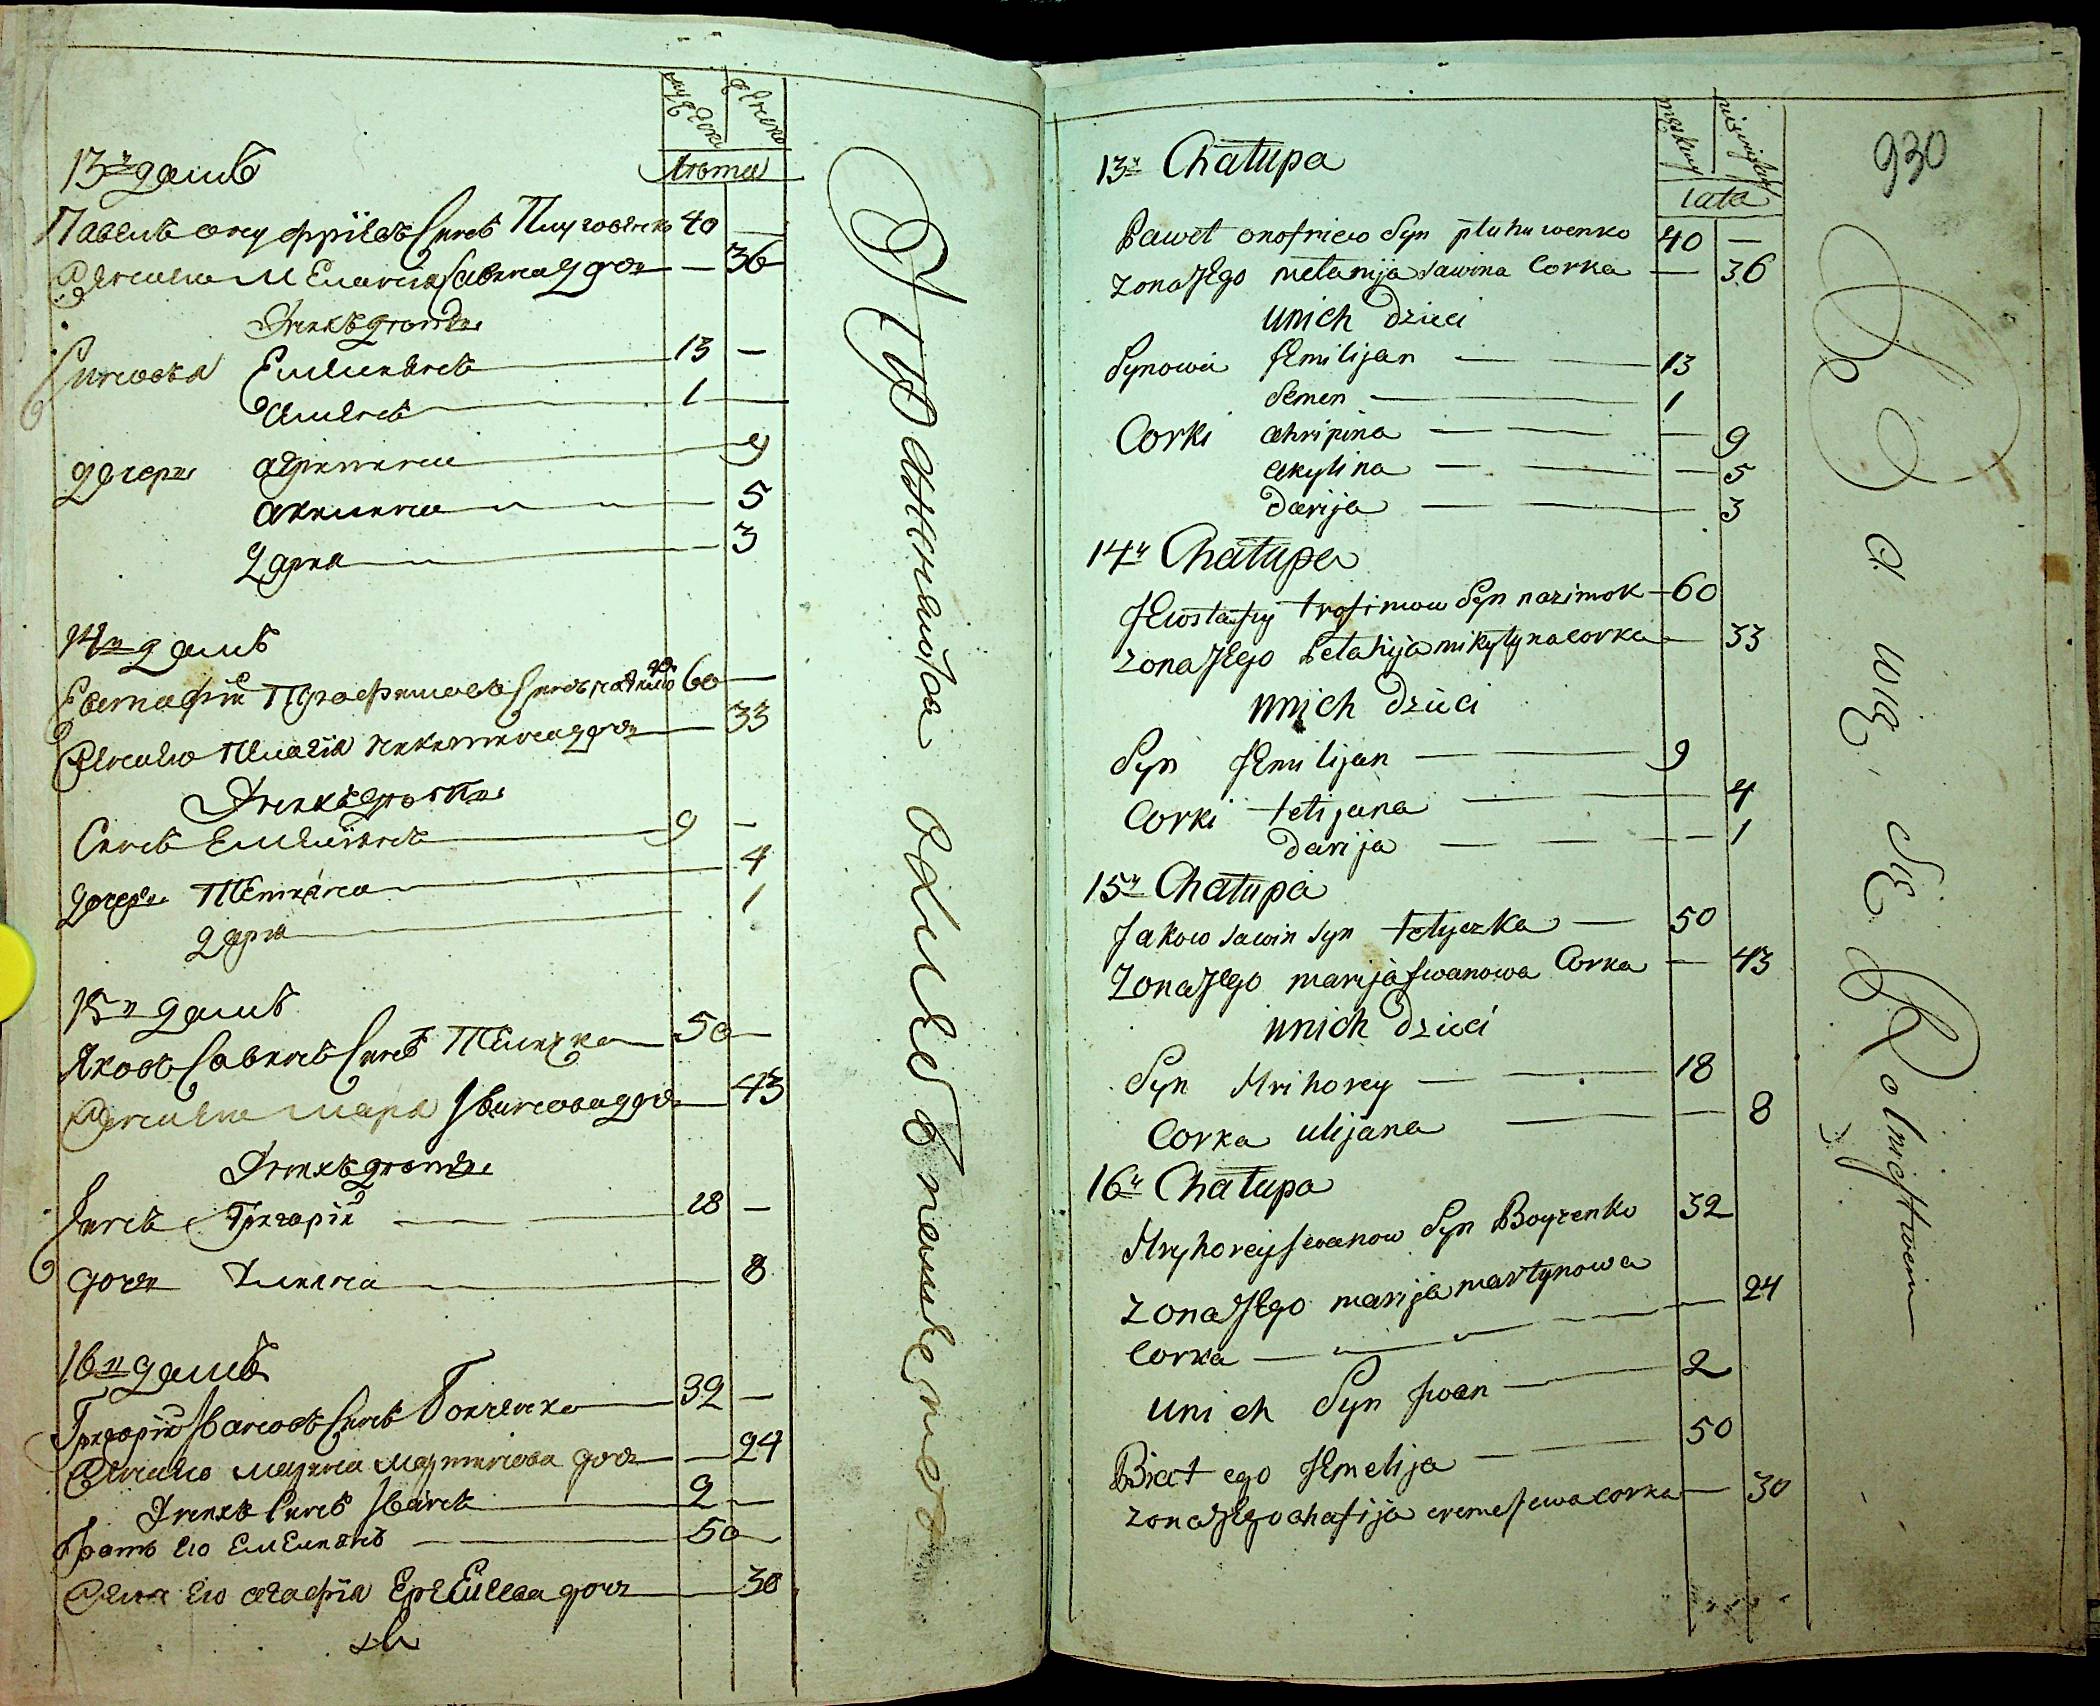 мужеска женска
лѣта
13й домъ
Павелъ онуфрїевъ Сынъ Плуговенко 40 —
Жена его Меланія Савина дочь — 36
У нихъ дѣти
Сыновья Емилианъ 13 —
Симеонъ 1 —
дочери агрипина 9
акилина 5
дарія 3
14й домъ
Евстафій Трофимовъ Сынъ назимко 60 —
Жена его Пелагія Никитина дочь — 33
У нихъ дѣти
Сынъ Емиліянъ 9 —
дочери Тетіяна 4
дарія 1
15й домъ
Яковъ Савинъ Сынъ Теличка 50 —
Жена его Марія Иванова дочь — 43
У нихъ дѣти
Сынъ Григорій 18 —
дочь Улияна 8
16й домъ
Григорій Ивановъ Сынъ Бойченко 32 —
Жена его Марина Мартинова дочь — 24
У нихъ Сынъ Иванъ 2 —
Братъ его Емелианъ 50 —
Жена его агафія Еремѣева дочь 30
930
męskiey niewieściey
lata
13ta Chałupa
Paweł onofriew Syn pluhuwenko 40 —
zona Jego melanija sawina Corka — 36
u nich dzieci
Synowie Jemilijan — 13
Semen — 1
Corki ahripina — 9
akylina — 5
darija — 3
14ta Chałupa
Jewstafiy trofimow Syn nazimok 60
zona Jego Pelahija mikytyna corka — 33
u nich dzieci
Syn Jemilijan — 9
Corki tetijana 4
darija — 1
15ta Chałupa
Jakow sawin syn telyczka — 50
zona Jego marija Jwanowa Corka — 43
u nich dzieci
Syn Hrihorey — 18
Corka ulijana — 8
16ta Chałupa
Hryhorey Jwanow Syn Boyczenko 32
zona Jego marija martynowa
Corka — 24
u nich Syn Jwan — 2
Brat ego Jemelija — 50
zona Jego ahafija eremejewa corka — 30
Bawią Się Rolnictwem